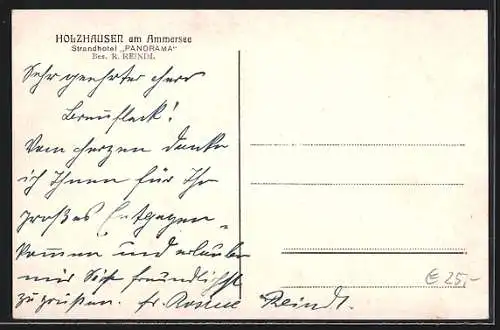 HOLZHAUSEN am Ammersee
Strandhotel „PANORAMA“
Bes. R. REINDL
Sehr geehrter Herr
Vom Herzen danke
ich Ihnen für Ihr
großes Entgegen-
kommen und erlaube
mir Sie freundlichst
zu grüßen. Fr. Rosina Reindl.
€ 25,-